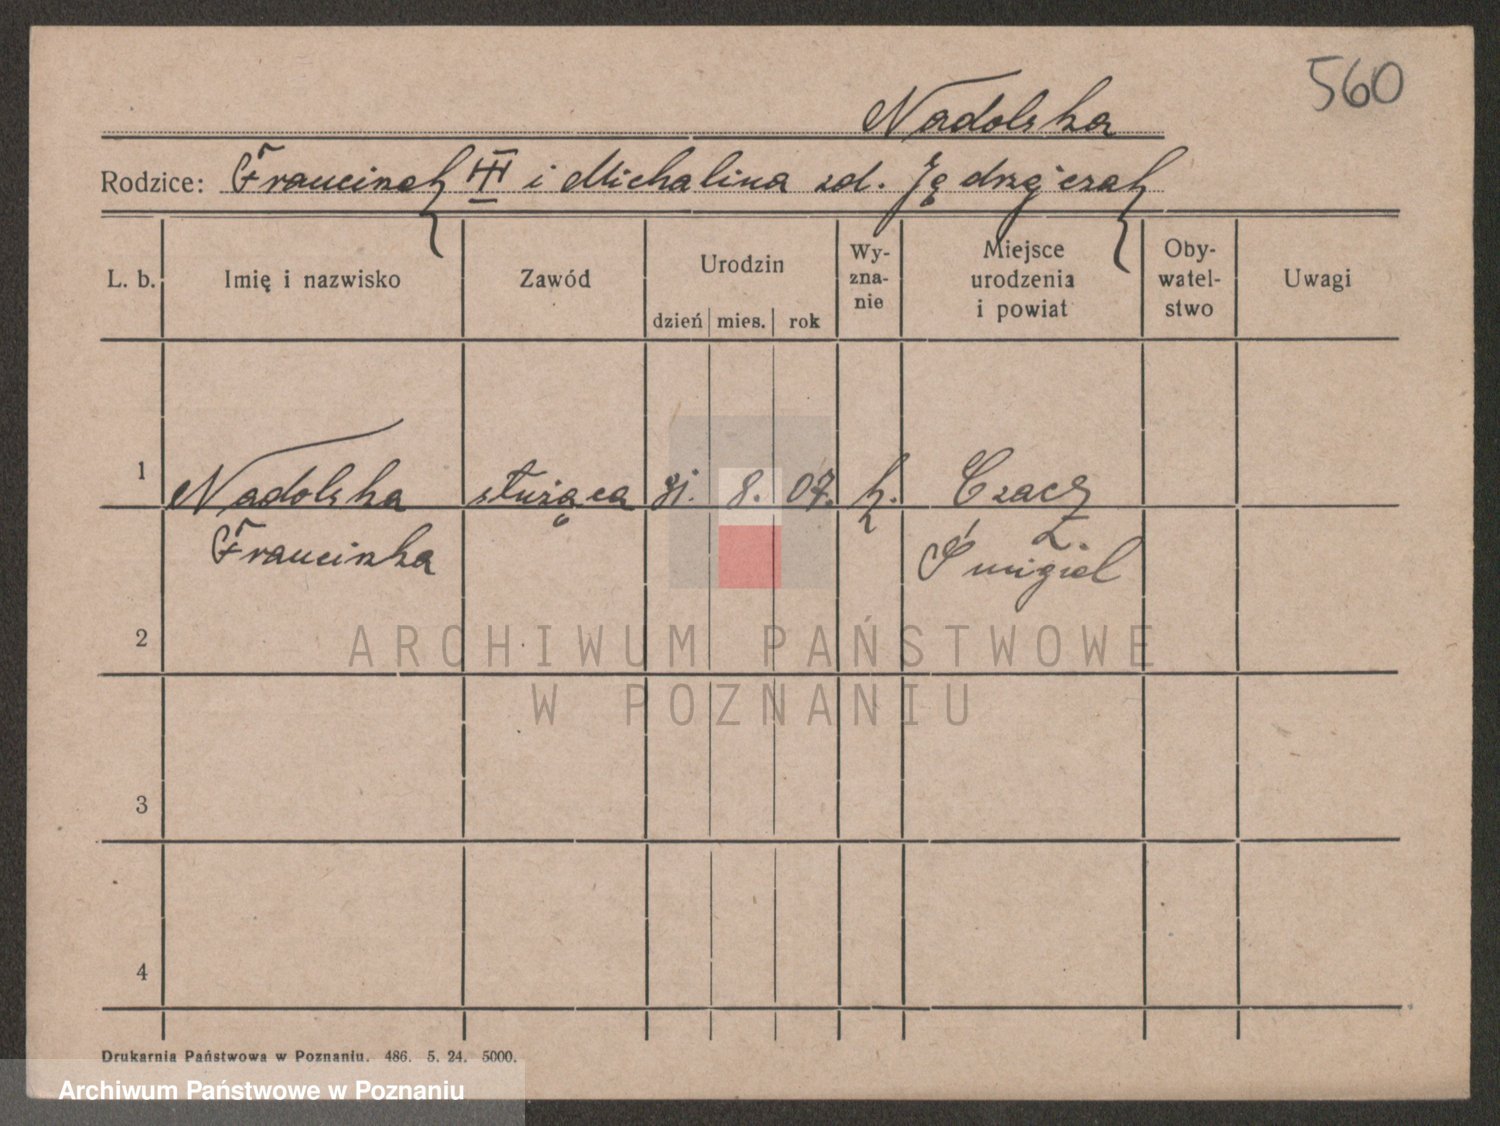 560
Nadolska
Rodzice: Franciszek III i Michalina zd. Jędrzejczak
L. b. Imię i nazwisko Zawód Urodzin dzień mies. rok Wy-zna-nie Miejsce urodzenia i powiat Oby-watel-stwo Uwagi
1 Nadolska służąca 31. 8. 07. k. Czacz
Franciszka p. Śmigiel
2
3
4
Drukarnia Państwowa w Poznaniu. 486. 5. 24. 5000.
ARCHIWUM PAŃSTWOWE
W POZNANIU
Archiwum Państwowe w Poznaniu